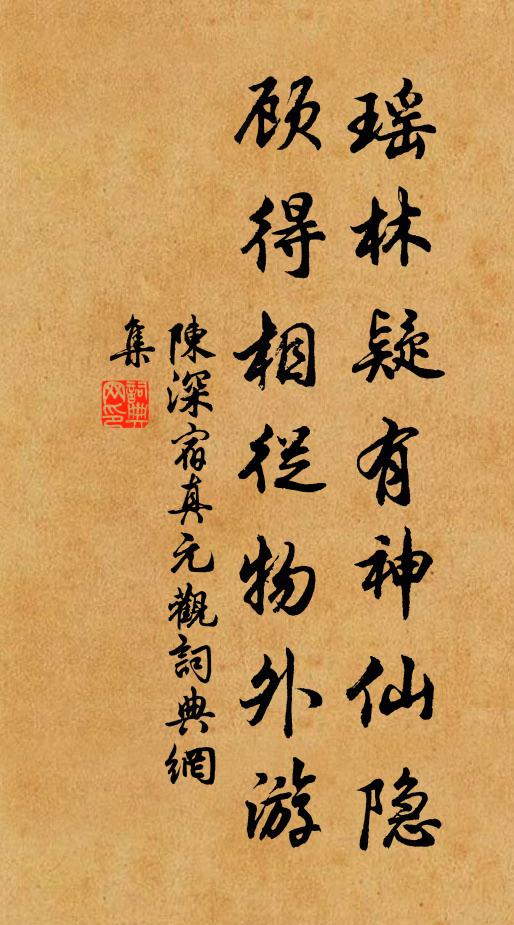 瑶林疑有神仙隐
顾得相從物外游
陳深宿真元觀詞典網
集
詞典网印